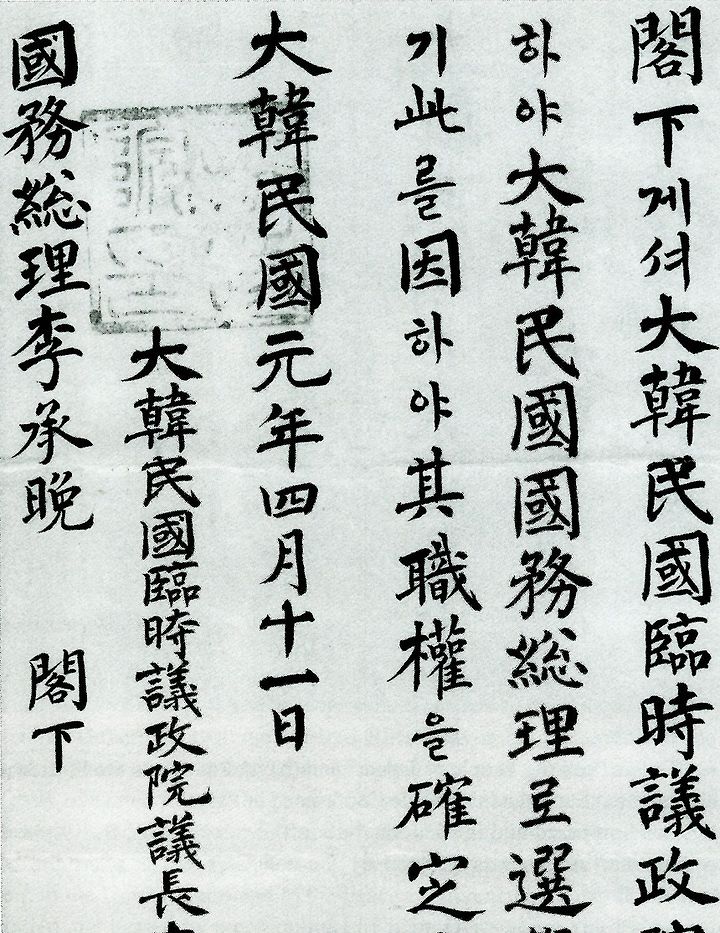 閣下게셔大韓民國臨時議政院
하야大韓民國國務総理로選
기此를因하야其職權을確定
大韓民國元年四月十一日
大韓民國臨時議政院議長
國務総理李承晩 閣下